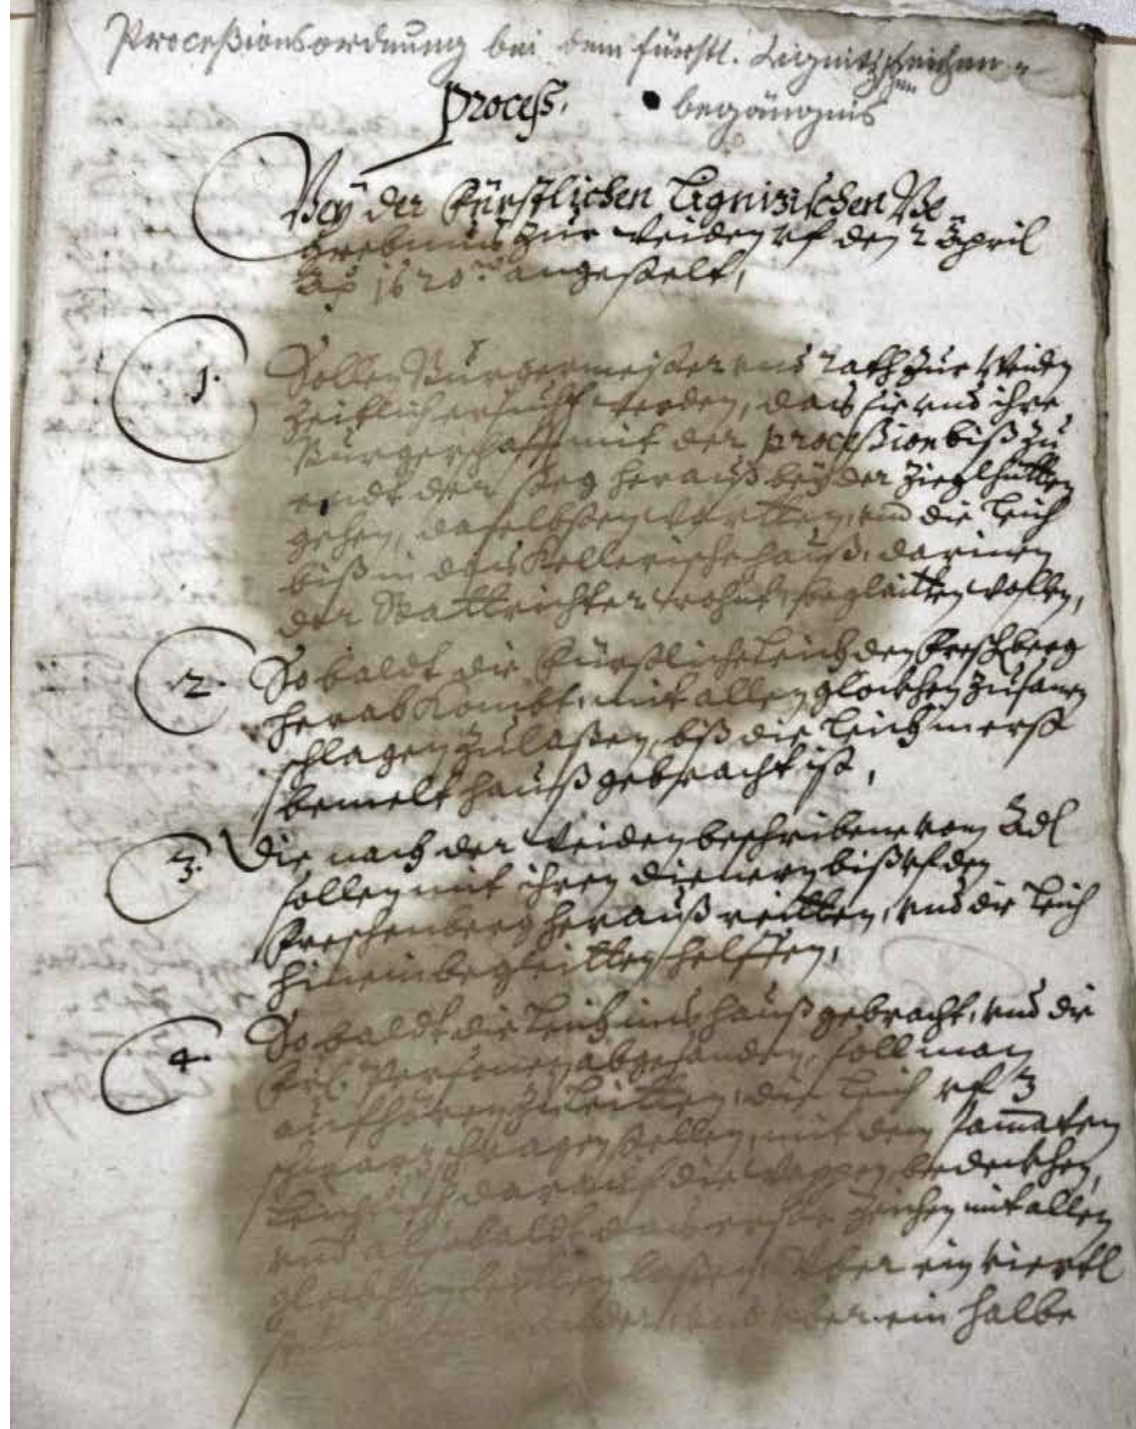 Proceßionsordnung bei dem fürstl. Lignitzschen Leichen-
begängnis
Process.
Bey der Fürstlichen Lignizischen Be-
grebnus zur Weiden vf den 2 April
Ao 1620 angestelt,
1. Sollen Burgermeister vnd Rath zur Weiden
zeitlich ersucht werden, das sie vnd ihre
Burgerschafft mit der procession biß zu
endt der steg herauß bey der Zieglhütten
gehen, daselbsten wartten, vnd die Leich
biß in das Kellerische hauß, darinen
der Stattrichter wohnt, begleitten wollen,
2. So baldt die Fürstliche Leich den Freschberg
herab kombt, mit allen glockhen zusamen
schlagen zulaßen, biß die Leich in erst
bemelt hauß gebracht ist,
3. Die nach der Weiden beschribene vom Adl
sollen mit ihren dienern biß vf den
Freschenberg herauß reitten, vnd die Leich
hinein begleitten helffen,
4. So baldt die Leich ins hauß gebracht, vnd die
Frl. Personen abgestanden, soll man
aufhören zuleitten, die Leich vf 3
schwarz schragen stellen, mit dem samaten
Leichtuch darauf die Wappen bedeckhen,
vnd alsbaldt das erste zeichen mit allen
glockhen leitten laßen, Vber ein viertl
vnd vber ein halbe